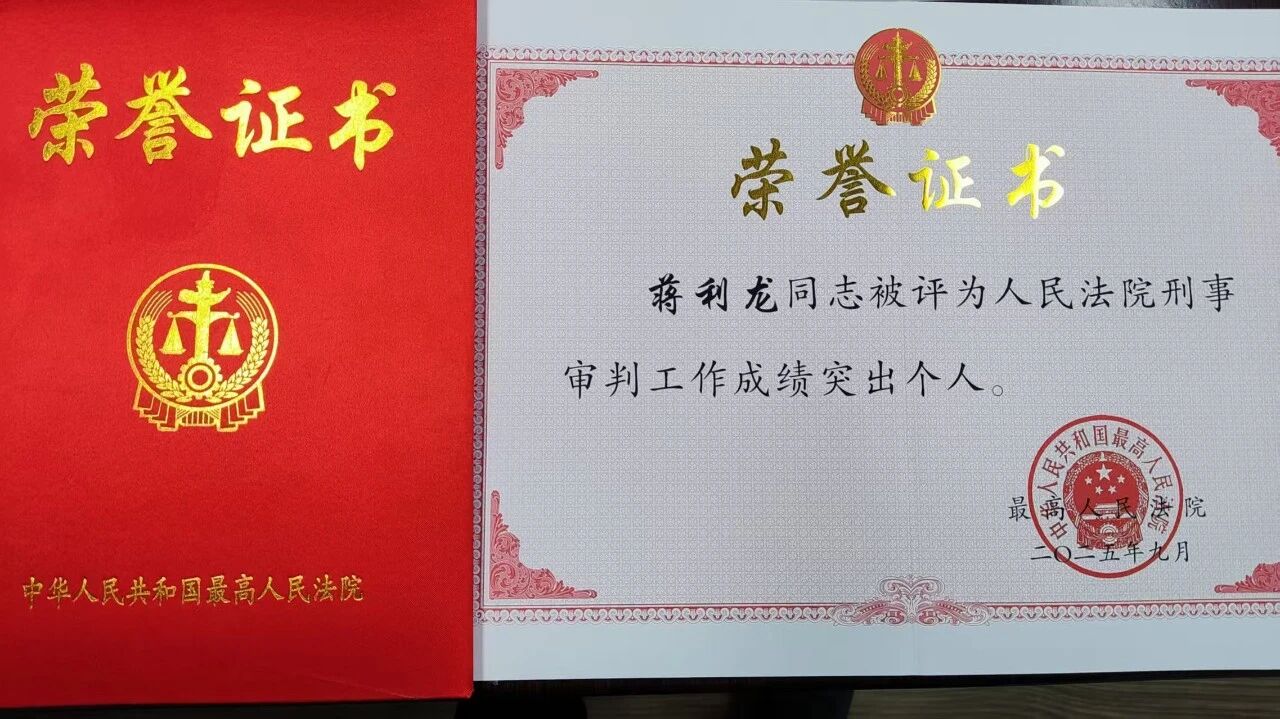 荣誉证书
中华人民共和国最高人民法院
荣誉证书
蒋利龙同志被评为人民法院刑事
审判工作成绩突出个人。
中华人民共和国最高人民法院
最高人民法院
二〇二五年九月